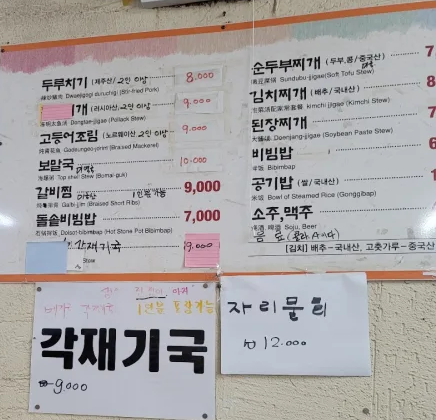 두루치기 (제주산/2인 이상) 8,000
Dwaejigogi duruchigi (Stir-fried Pork)
개 (러시아산, 2인 이상) 9,000
Dongtae-jjigae (Pollack Stew)
고등어조림 (노르웨이산 2인 이상) 9,000
Godeungeo-jorim (Braised Mackerel)
보말국 10,000
Top shell Stew (Bomal-guk)
갈비찜 1인분 가능 9,000
Galbi-jjim (Braised Short Ribs)
돌솥비빔밥 7,000
Dolsot-bibimbap (Hot Stone Pot Bibimbap)
각재기국 9,000
Stew
순두부찌개 (두부,콩/중국산) 7
Sundubu-jjigae (Soft Tofu Stew)
김치찌개 (배추/국내산) 8
kimchi jjigae (Kimchi Stew)
된장찌개 7
Doenjang-jjigae (Soybean Paste Stew)
비빔밥 6
Bibimbap
공기밥 (쌀/국내산) 1
Bowl of Steamed Rice (Gonggibap)
소주,맥주
Soju, Beer
[김치] 배추-국내산, 고춧가루-중국산
각재기국
₩9,000
자리물회
₩12,000